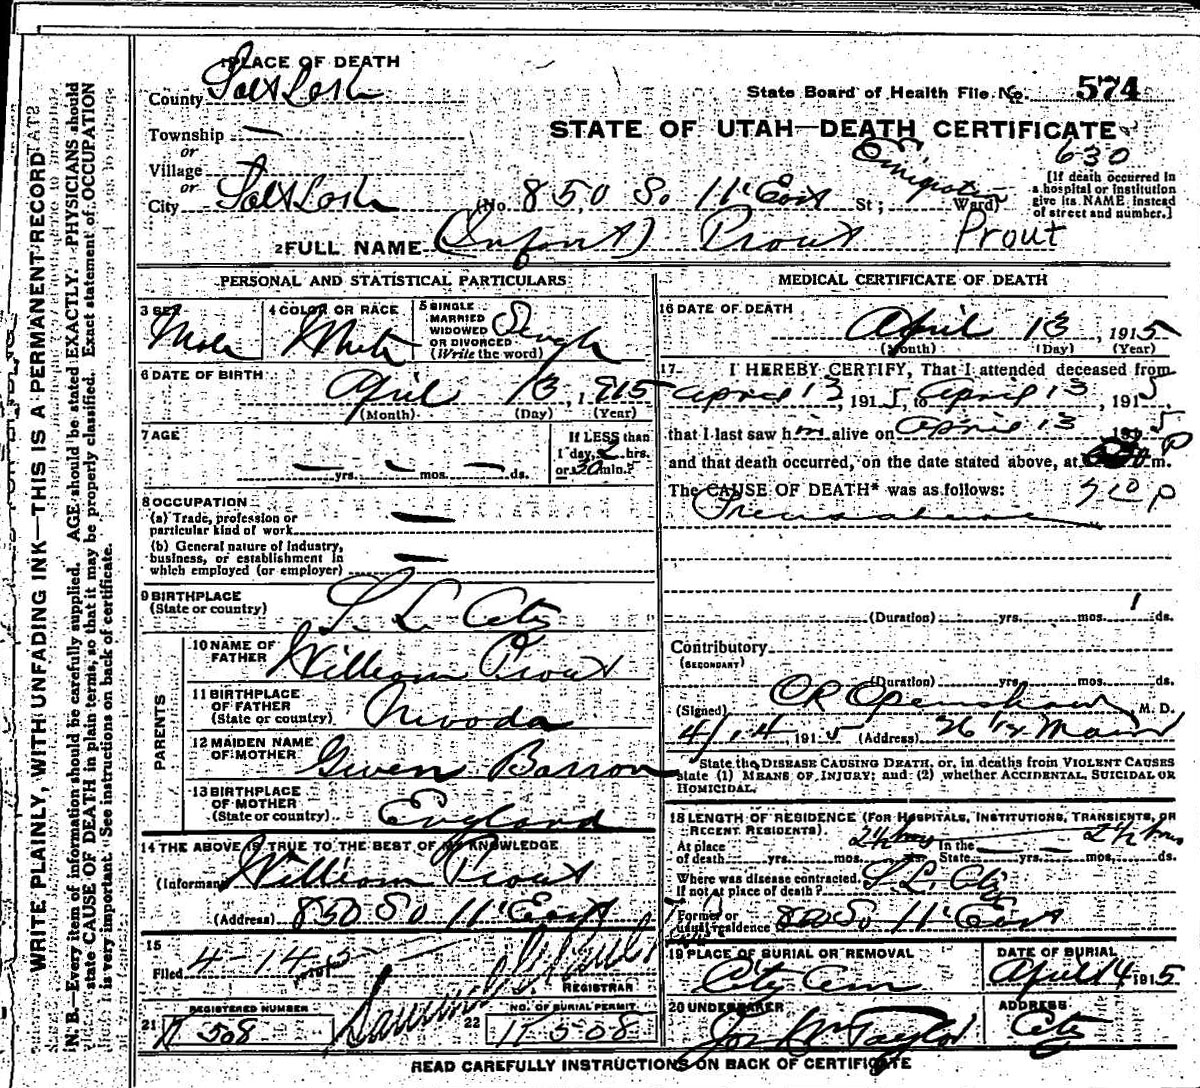 1 PLACE OF DEATH
County Salt Lake
State Board of Health File No. 574
Township —
or
STATE OF UTAH—DEATH CERTIFICATE
Village
or
630
City Salt Lake (No. 850 So 11" East St; Ward)
[If death occurred in
a hospital or institution
give its NAME instead
of street and number.]
2 FULL NAME (Infant) Prout Prout
PERSONAL AND STATISTICAL PARTICULARS
3 SEX Male
4 COLOR OR RACE White
5 SINGLE
MARRIED
WIDOWED
OR DIVORCED
(Write the word) Single
6 DATE OF BIRTH
April 13, 1915
(Month) (Day) (Year)
7 AGE
— yrs. — mos. — ds.
If LESS than
1 day, 2 hrs.
or 30 min.?
8 OCCUPATION
(a) Trade, profession or
particular kind of work —
(b) General nature of industry,
business, or establishment in
which employed (or employer) —
9 BIRTHPLACE
(State or country) S. L. City
PARENTS
10 NAME OF
FATHER William Prout
11 BIRTHPLACE
OF FATHER
(State or country) Nevada
12 MAIDEN NAME
OF MOTHER Gwen Barron
13 BIRTHPLACE
OF MOTHER
(State or country) England
14 THE ABOVE IS TRUE TO THE BEST OF MY KNOWLEDGE
(Informant William Prout
(Address) 850 So 11" East
15
Filed 4-14 1915
REGISTRAR
REGISTERED NUMBER
21 508
NO. OF BURIAL PERMIT
22 508
MEDICAL CERTIFICATE OF DEATH
16 DATE OF DEATH
April 13, 1915
(Month) (Day) (Year)
17 I HEREBY CERTIFY, That I attended deceased from
April 13, 1915, to April 13, 1915
that I last saw him alive on April 13 1915
and that death occurred, on the date stated above, at m.
The CAUSE OF DEATH* was as follows: P
Premature
(Duration) yrs. mos. 1 ds.
Contributory
(SECONDARY)
(Duration) yrs. mos. ds.
(Signed) O R Openshaw, M. D.
4/14, 1915 (Address) Main
State the DISEASE CAUSING DEATH, or, in deaths from VIOLENT CAUSES
state (1) MEANS OF INJURY; and (2) whether ACCIDENTAL, SUICIDAL OR
HOMICIDAL.
18 LENGTH OF RESIDENCE (FOR HOSPITALS, INSTITUTIONS, TRANSIENTS, OR
RECENT RESIDENTS).
At place
of death yrs. mos. 2½ hrs ds. In the
State — yrs. — mos. 2½ hrs ds.
Where was disease contracted,
If not at place of death? S. L. City
Former or
usual residence 850 So 11" East
19 PLACE OF BURIAL OR REMOVAL
City Cem
DATE OF BURIAL
April 14 1915
20 UNDERTAKER
Jos Wm Taylor
ADDRESS
City
READ CAREFULLY INSTRUCTIONS ON BACK OF CERTIFICATE
WRITE PLAINLY, WITH UNFADING INK—THIS IS A PERMANENT RECORD
N. B.—Every item of information should be carefully supplied. AGE should be stated EXACTLY. PHYSICIANS should
state CAUSE OF DEATH in plain terms, so that it may be properly classified. Exact statement of OCCUPATION
is very important. See instructions on back of certificate.